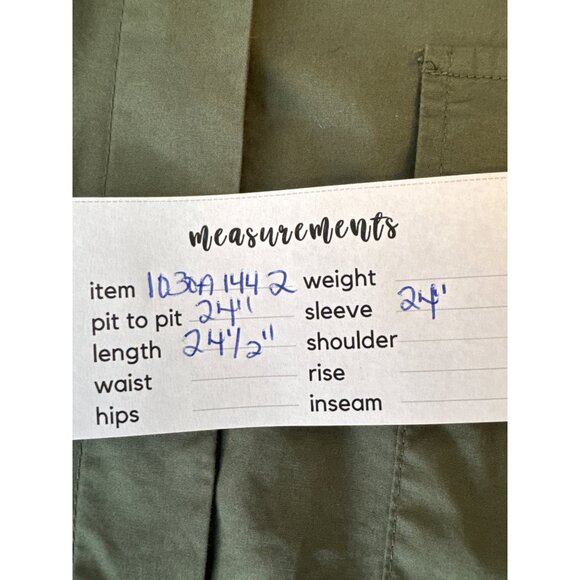 measurements
item 1030A1442 weight
pit to pit 24" sleeve 24"
length 24 1/2" shoulder
waist rise
hips inseam